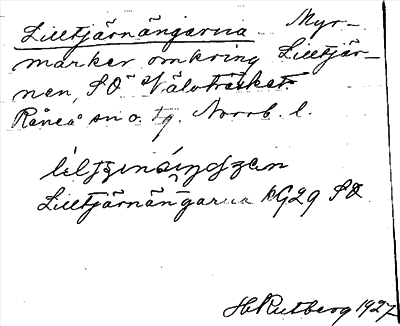 Lilltjärnängarna Myr-
marker omkring Lilltjär-
nen, SO Välviträsket.
Råneå sn o. tg. Norrb. l.
Lilltjärnängarna KG29 SO
H. Rutberg 1927